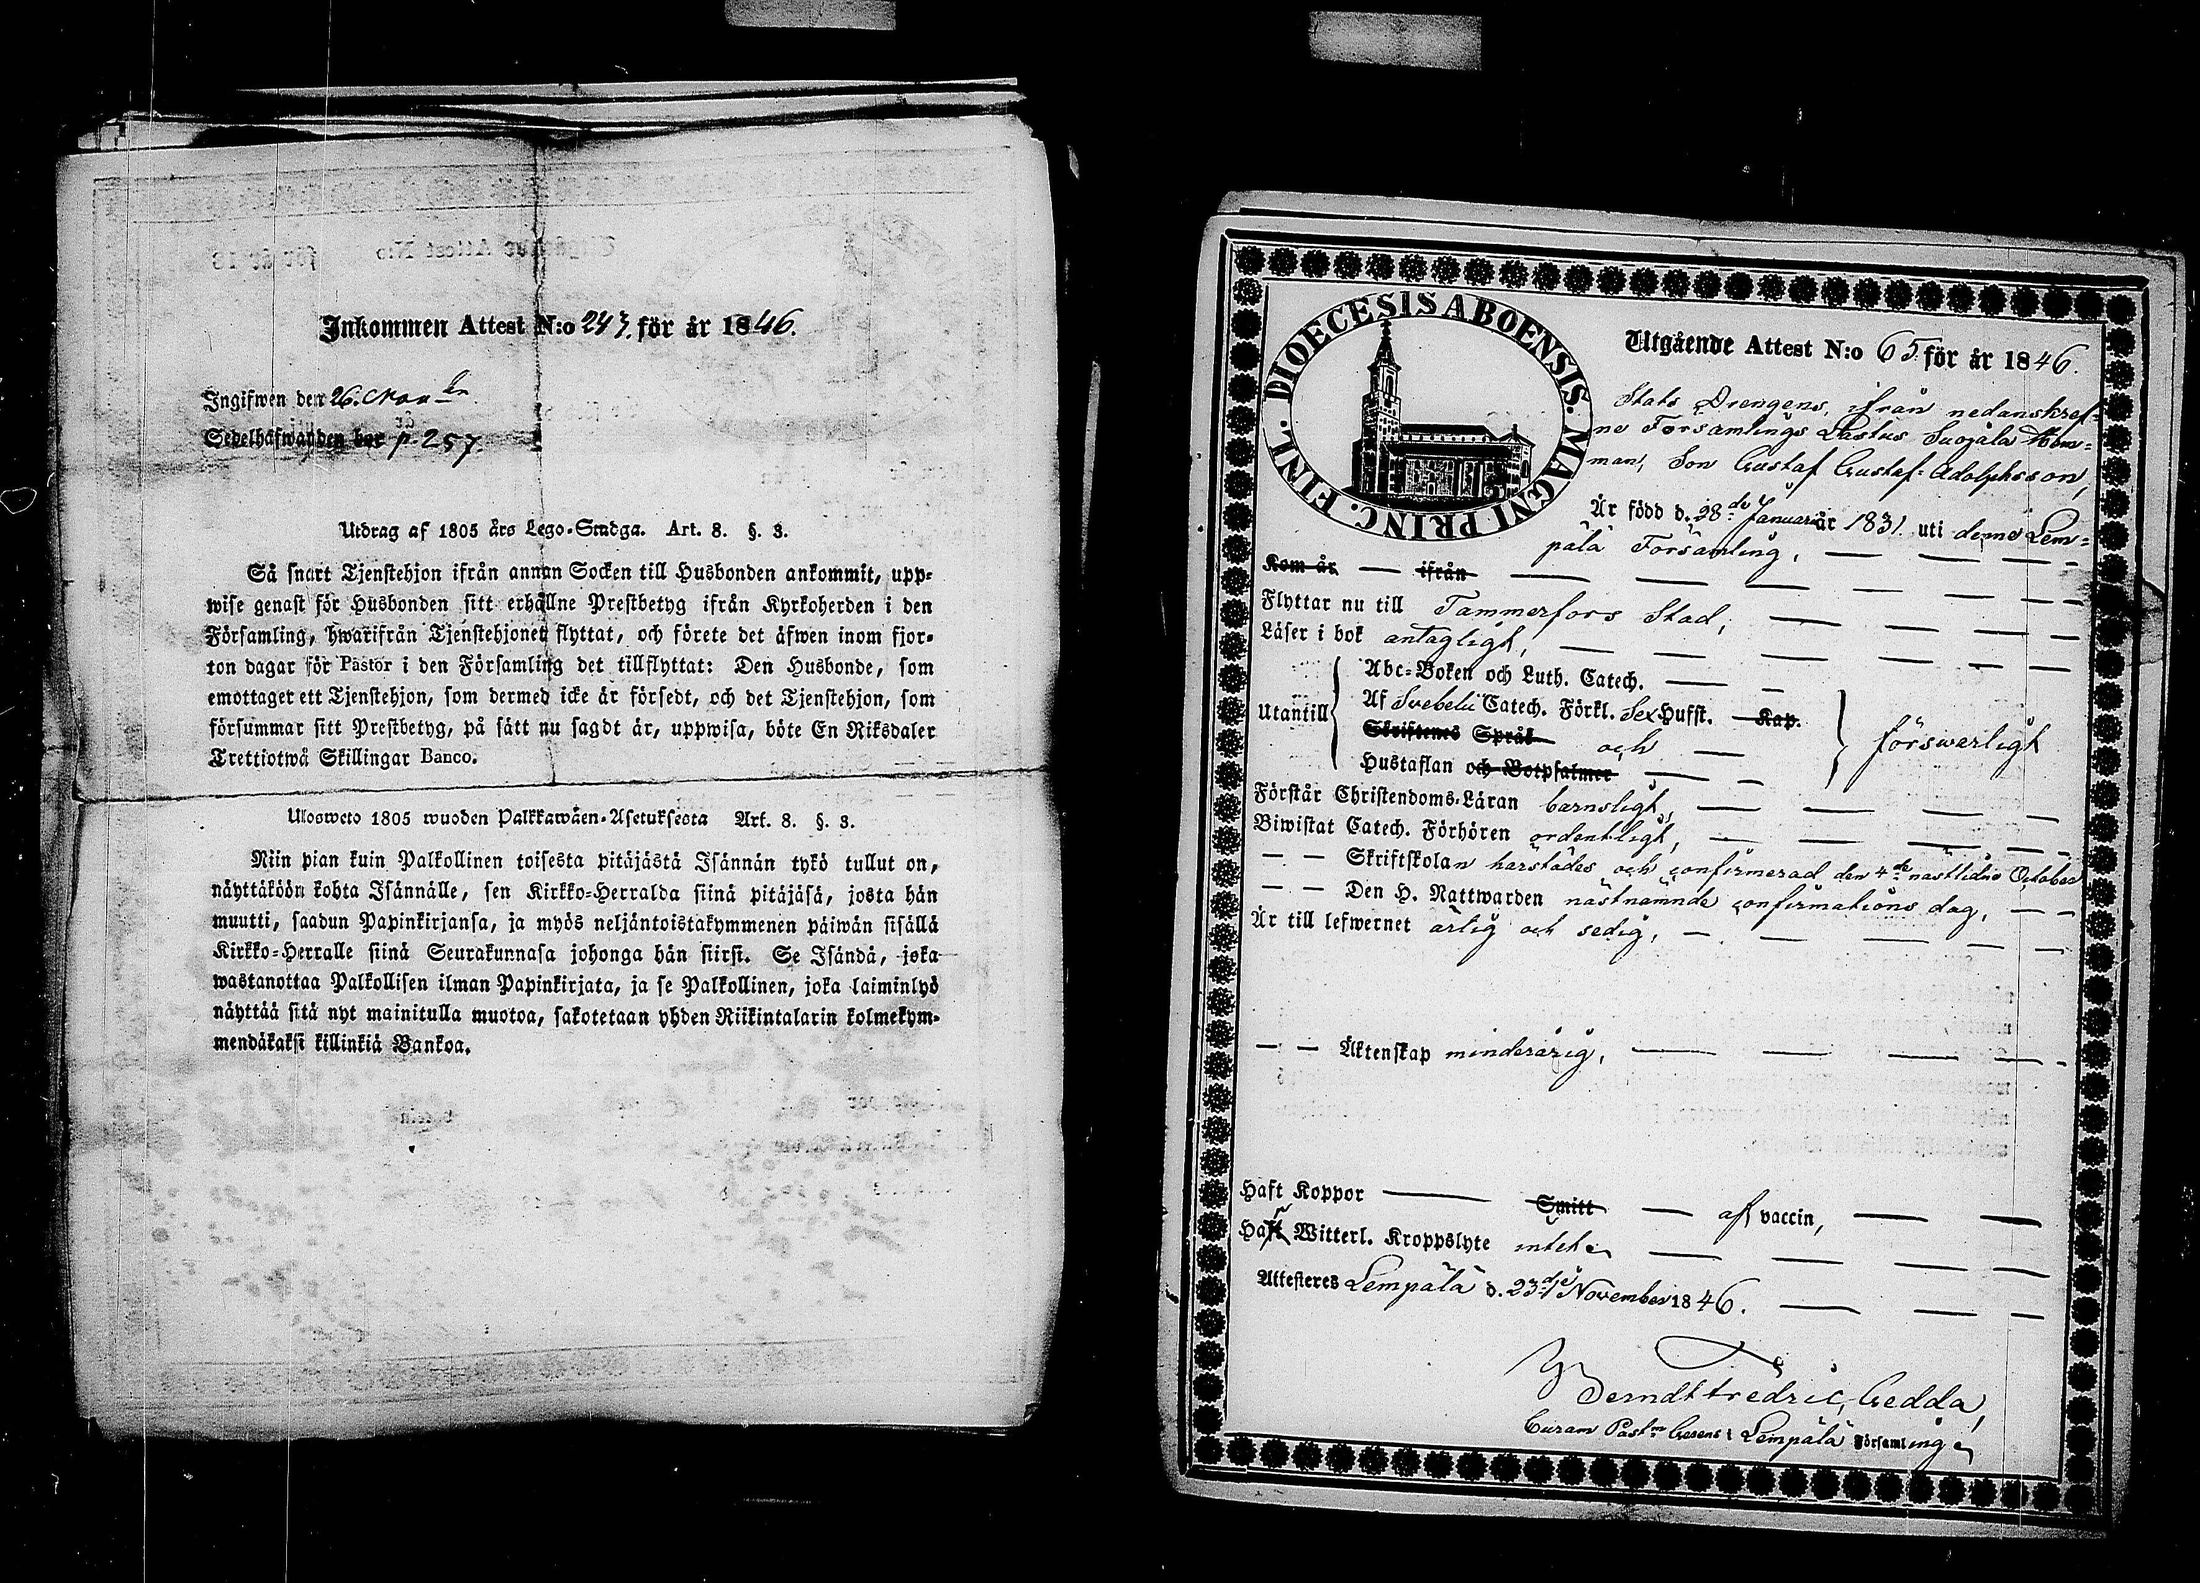 Inkommen Attest N:o 243. för år 1846.
Ingifwen den 26. Nov
Sedelhafwanden bor p. 257.
Utdrag af 1805 års Lego-Stadga. Art. 8. §. 3.
Så snart Tjenstehjon ifrån annan Socken till Husbonden ankommit, upp-
wise genast för Husbonden sitt erhållne Prestbetyg ifrån Kyrkoherden i den
Församling, hwarifrån Tjenstehjonet flyttat, och förete det äfwen inom fjor-
ton dagar för Pastor i den Församling det tillflyttat: Den Husbonde, som
emottager ett Tjenstehjon, som dermed icke är försedt, och det Tjenstehjon, som
försummar sitt Prestbetyg, på sätt nu sagdt är, uppwisa, böte En Riksdaler
Trettiotwå Skillingar Banco.
Ulosweto 1805 wuoden Palkkawäen-Asetuksesta Art. 8. §. 3.
Niin pian kuin Palkollinen toisesta pitäjästä Isännän tykö tullut on,
näyttäköön kohta Isännälle, sen Kirkko-Herralda siinä pitäjäsä, josta hän
muutti, saadun Papinkirjansa, ja myös neljäntoistakymmenen päiwän sisällä
Kirkko-Herralle siinä Seurakunnasa johonga hän siirsi. Se Isändä, joka
wastanottaa Palkollisen ilman Papinkirjata, ja se Palkollinen, joka laiminlyö
näyttää sitä nyt mainitulla muotoa, sakotetaan yhden Riikintalarin kolmekym-
mendäkaksi killinkiä Bankoa.
DIOECESIS ABOENSIS. MAGNI PRINC. FINL.
Utgående Attest N:o 65 för år 1846.
Stats Drengens, ifrån nedanskref-
ne Församlings Lastus Suojala Hem-
man, Son Gustaf Gustaf-Adolphsson,
Är född d. 28de Januari år 1831. uti denne Lem-
pälä Församling,
Kom år ifrån
Flyttar nu till Tammerfors Stad,
Läser i bok antagligt,
Abc-Boken och Luth. Catech.
Utantill Af Svebelii Catech. Förkl. Sex Hufst. Kap. försvarligt
Skriftenes Språk och
Hustaflan och Botpsalmer
Förstår Christendoms-Läran barnsligt,
Biwistat Catech. Förhören ordentligt,
Skriftskolan härstädes och confirmerad den 4de nästlidne October
Den H. Nattwarden nästnämnde confirmations dag,
Är till lefwernet artig och sedig,
Äktenskap minderårig,
Haft Koppor Smitt af vaccin,
Haft Witterl. Kroppslyte intet
Attesteres Lempälä d. 23de November 1846.
Berndt Fredric Gedda,
Curam Past. Gerens i Lempälä Församling